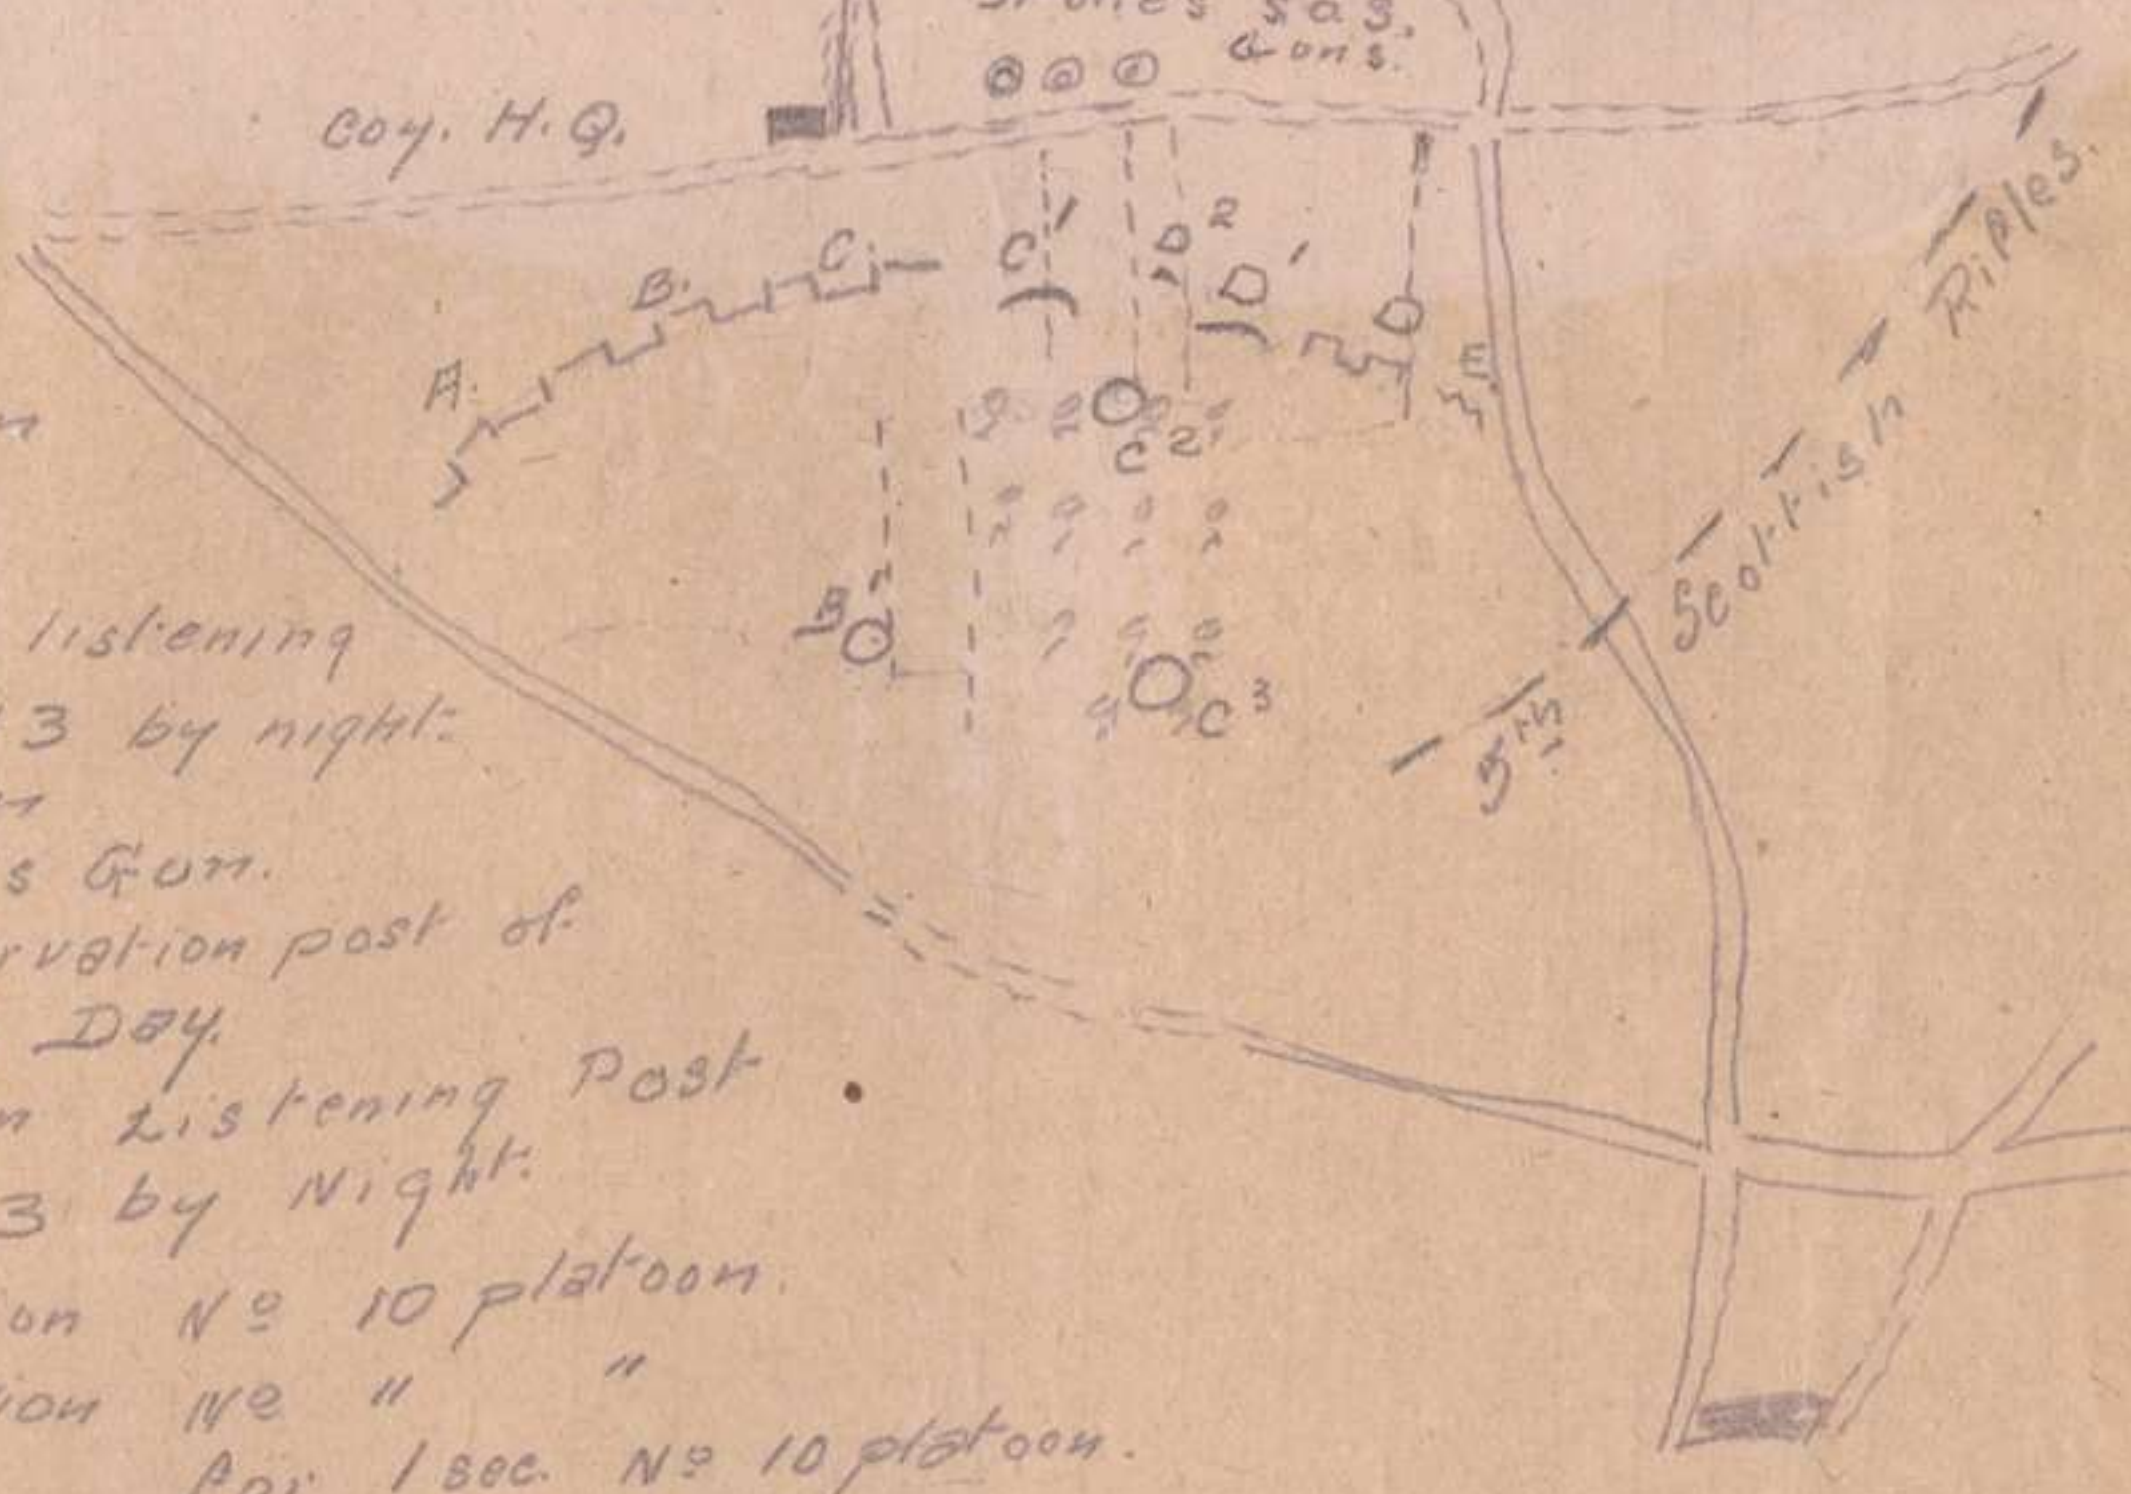 Gons.
Coy. H.Q.
A.
B.
C.
C'
D²
D'
D
E.
C²
B"
C³
5th Scottish Rifles.
listening
3 by night.
s Gun.
rvation post of
Day.
Listening Post
3 by Night.
on Nº 10 platoon.
ion Nº " "
for 1 sec. Nº 10 platoon.